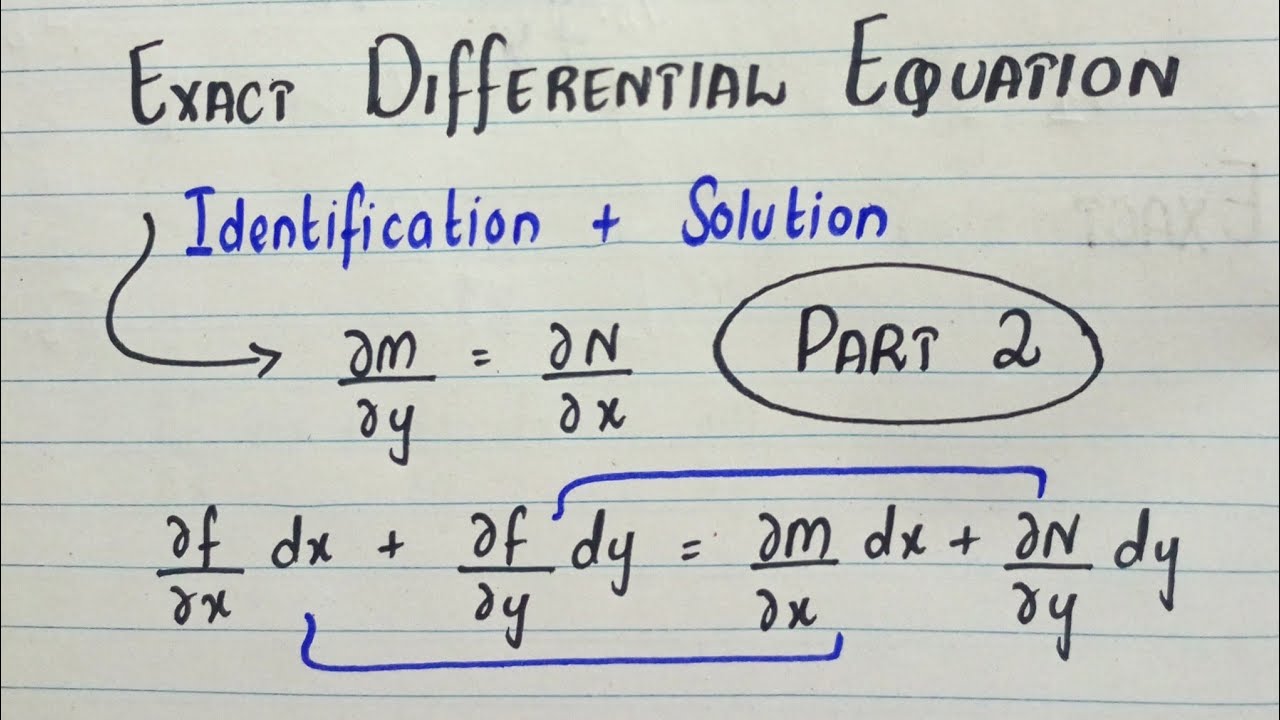 EXACT DIFFERENTIAL EQUATION
Identification + Solution
∂M/∂y = ∂N/∂x
PART 2
∂f/∂x dx + ∂f/∂y dy = ∂M/∂x dx + ∂N/∂y dy
EXACT